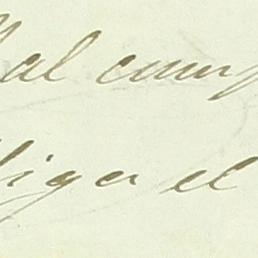 al cump
liga el